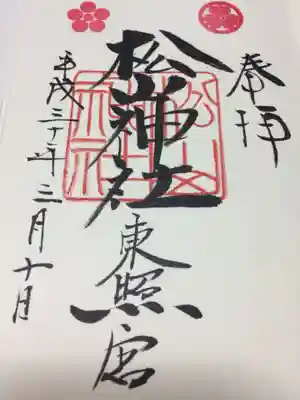 奉拝
松山神社
東照宮
平成三十年三月十日